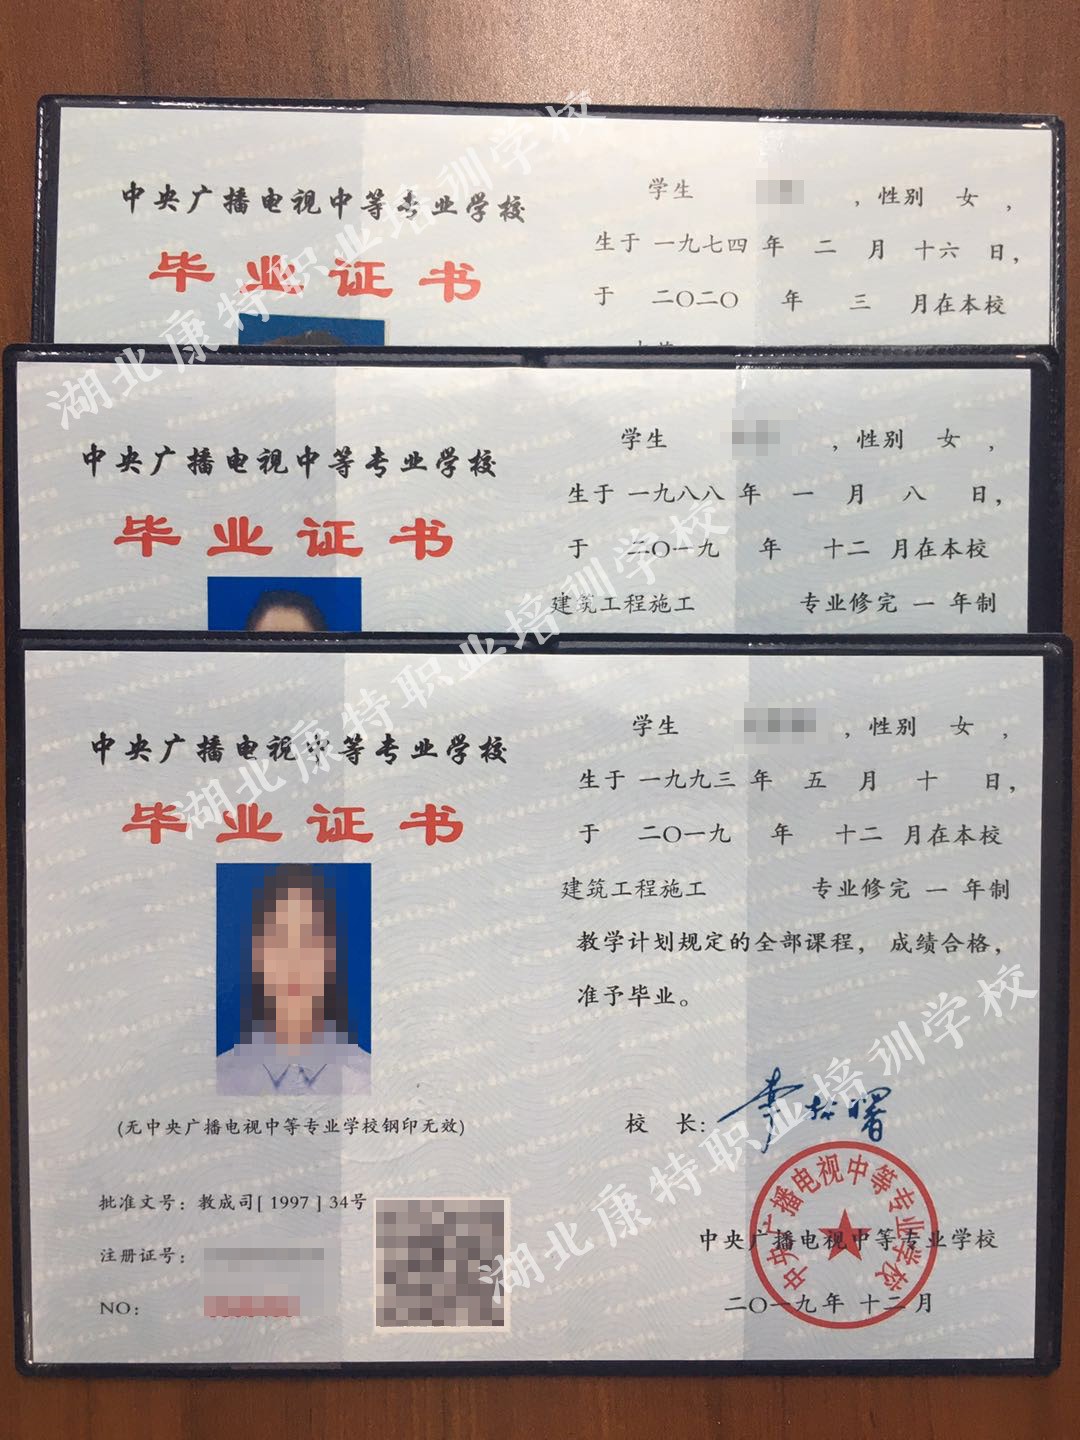 中央广播电视中等专业学校
毕业证书
学生 ，性别 女 ，
生于 一九七四 年 二 月 十六 日，
于 二〇二〇 年 三 月在本校
中央广播电视中等专业学校
毕业证书
学生 ，性别 女 ，
生于 一九八八 年 一 月 八 日，
于 二〇一九 年 十二 月在本校
建筑工程施工 专业修完 一 年制
中央广播电视中等专业学校
毕业证书
(无中央广播电视中等专业学校钢印无效)
批准文号：教成司[ 1997 ] 34号
注册证号：
NO：
学生 ，性别 女 ，
生于 一九九三 年 五 月 十 日，
于 二〇一九 年 十二 月在本校
建筑工程施工 专业修完 一 年制
教学计划规定的全部课程， 成绩合格，
准予毕业。
校 长：
中央广播电视中等专业学校
二〇一九年 十二月
中央广播电视中等专业学校
湖北康特职业培训学校
湖北康特职业培训学校
湖北康特职业培训学校